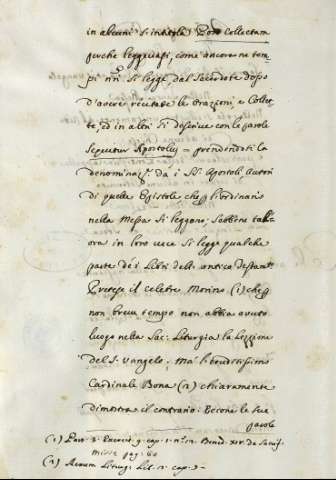 in alcuni s'intitola Post Collectam
perche leggevasi, come ancora ne tem-
pi nri si legge dal Sacerdote dopo
d'avere recitate le Orazioni, e Collet-
te, ed in altri si descrive con le parole
Sequitur Apostolus = prendendosi la
denominaz.e da i SS. Apostoli Autori
di quelle Epistole che p l'ordinario
nella Messa si leggono; sebbene tal-
ora in loro vece si legge qualche
parte de i Libri dell' antico Testamto
Pretese il celebre Morino (1) che p
non breve tempo non abbia avuto
luogo nella Sac: Liturgia la Lezzione
del S. Vangelo; ma l'eruditissimo
Cardinale Bona (2) chiaramente
dimostra il contrario. Eccone le sue
parole
(1) Part. 3. Exercit. 9. cap. 1. n.o 12. Bened. XIV. de Sacrif.
Missæ pag. 60
(2) Rerum Liturg. Lib. 2. cap. 7.